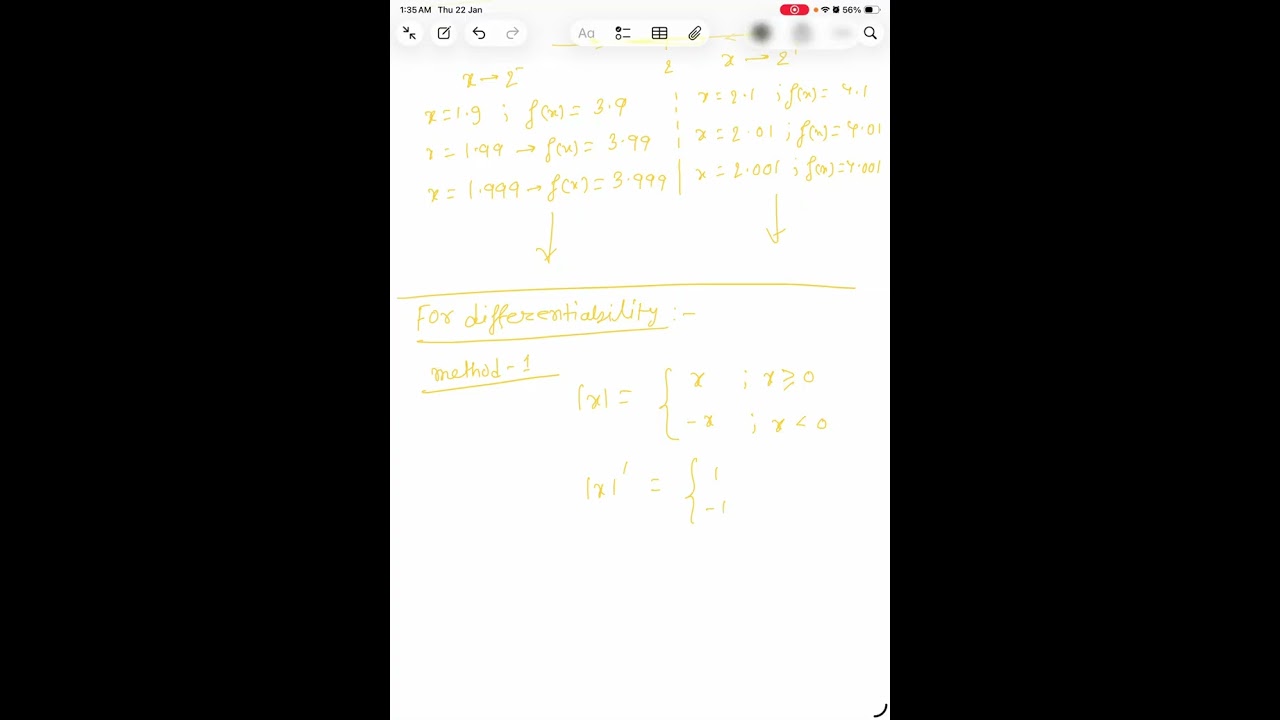 1:35 AM Thu 22 Jan 56%
Aa
2
x → 2⁻
x → 2⁺
x = 1.9 ; f(x) = 3.9
x = 2.1 ; f(x) = 4.1
x = 1.99 → f(x) = 3.99
x = 2.01 ; f(x) = 4.01
x = 1.999 → f(x) = 3.999
x = 2.001 ; f(x) = 4.001
For differentiability :-
method - 1
|x| = { x ; x ≥ 0
-x ; x < 0
|x|' = { 1
-1